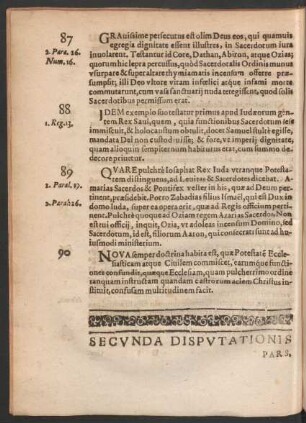 87
2. Para. 26.
Num. 16.
GRAvissime persecutus est olim Deus eos, qui quamuis
egregia dignitate essent illustres, in Sacerdotum iura
inuolarent. Testantur id Core, Dathan, Abiron, atque Ozias;
quorum hic lepra percussus, quòd Sacerdotalis Ordinis munus
vsurpare & super altare thymiamatis incensum offerre præ-
sumpsit, illi Deo vltore vitam infesti aciequ infami morte
commutarunt, cum vasa sanctuarij nuda tetigissent, quod solis
Sacerdotibus permissum erat.
88
1. Reg. 13.
IDEM exemplo suo testatur primus apud Iudæorum gen-
tem Rex Saul, quem, quia functionibus Sacerdotum se
immiscuit, & holocaustum obtulit, docet Samuel stultè egisse,
mandata Dei non custodiuisse; & fore, vt imperij dignitate,
quam alioquin sempiternam habiturus erat, cum summo de
decore priuetur.
89
2. Paral. 19.
2. Paral. 26.
QVARE pulchrè Iosaphat Rex Iuda vtranque Potesta-
tem distinguens, ad Leuitas & Sacerdotes dicebat. A-
marias Sacerdos & Pontifex vester in his, quæ ad Deum per-
tinent, præsidebit. Porro Zabadias filius Ismael, qui est Dux in
domo Iuda, super ea opera erit, quæ ad Regis officium pertinent.
Pulchrè quoque ad Oziam regem Azarias Sacerdos. Non
est tui officij, inquit, Ozia, vt adoleas incensum Domino, sed
Sacerdotum, id est, filiorum Aaron, qui consecrati sunt ad hu-
iusmodi ministerium.
90
NOVA semper doctrina habita est, quæ Potestatē Eccle-
siasticam atque Ciuilem commiscet, earumque functio-
nes confundit, quæque Ecclesiam, quam pulcherrimo ordine
tanquam instructam quandam castrorum aciem Christus in-
stituit, confusam multitudinem facit.
SECVNDA DISPVTATIONIS
PARS.